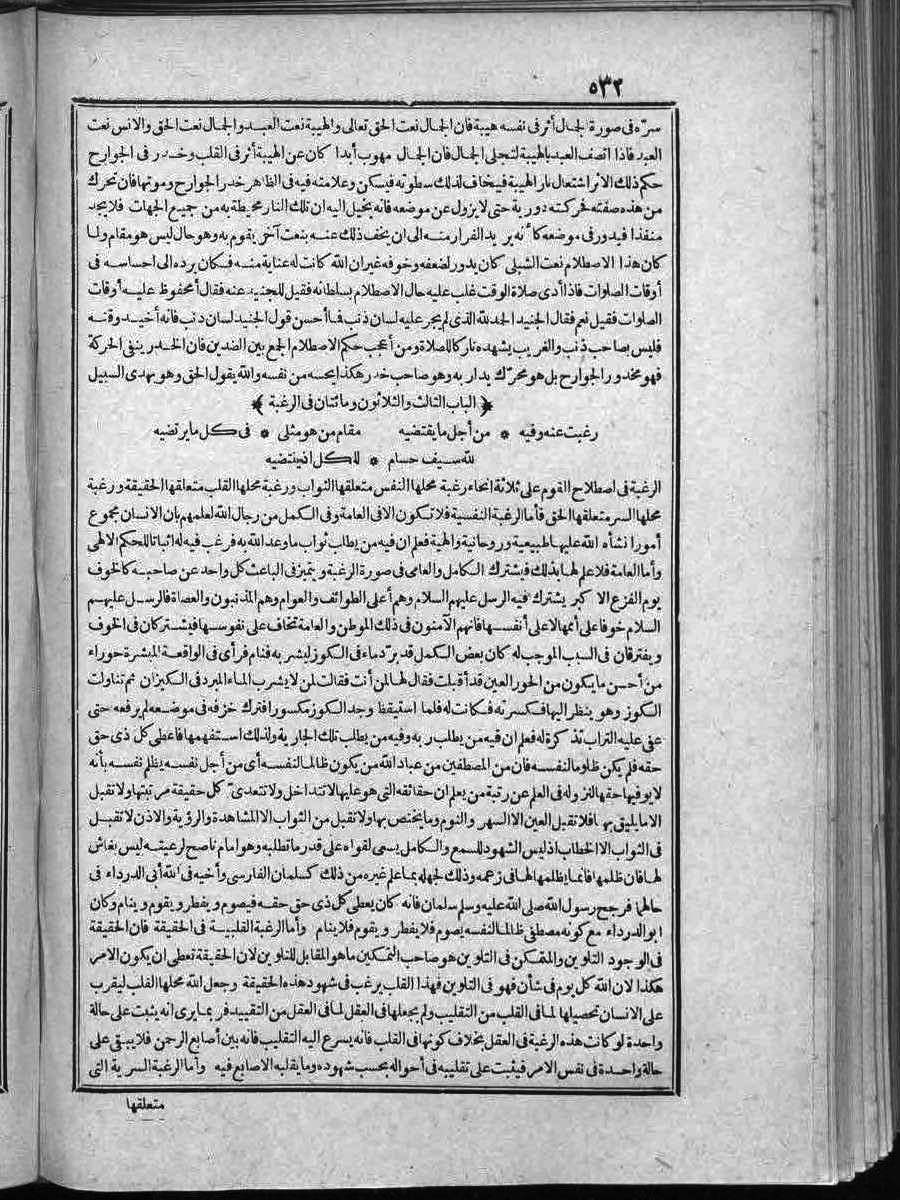 ٥٣٢
سره فى صورة الجمال أثر فى نفسه هيبة فان الجمال نعت الحق تعالى والهيبة نعت العبد والجمال نعت الحق والانس نعت
العبد فاذا اتصف العبد بالهيبة لتجلى الجمال فان الجمال مهوب أبدا كان عن الهيبة أثر فى القلب وخدر فى الجوارح
حكم ذلك الاثر اشتعال نار الهيبة فيخاف لذلك سطوته فيسكن وعلامته فيه فى الظاهر خدر الجوارح وموتها فان تحرك
من هذه صفته فحركته دورية حتى لا يزول عن موضعه فانه يخيل اليه ان تلك النار محيطة به من جميع الجهات فلا يجد
منفذا فيدور فى موضعه كأنه يريد الفرار منه الى ان يخف ذلك عنه بنعت آخر يقوم به وهو حال ليس هو مقام ولما
كان هذا الاصطلام نعت الشبلى كان يدور لضعفه وخوفه غير ان الله كانت له عناية منه فكان يرده الى احساسه فى
أوقات الصلوات فاذا أدى صلاة الوقت غلب عليه حال الاصطلام بسلطانه فقيل للجنيد عنه فقال أمحفوظ عليه أوقات
الصلوات فقيل نعم فقال الجنيد الحمد لله الذى لم يجر عليه لسان ذنب فما أحسن قول الجنيد لسان ذنب فانه أخيذ وقته
فليس بصاحب ذنب والغريب يشهده تاركا للصلاة ومن أعجب حكم الاصطلام الجمع بين الضدين فان الخدر ينفى الحركة
فهو مخدور الجوارح بل هو محرك يدار به وهو صاحب خدر هكذا يحسه من نفسه والله يقول الحق وهو يهدى السبيل
﴿ الباب الثالث والثلاثون ومائتان فى الرغبة ﴾
رغبت عنه وفيه * من أجل ما يقتضيه مقام من هو مثلى * فى كل ما يرتضيه
لله سيف حسام * للكل اذ ينتضيه
الرغبة فى اصطلاح القوم على ثلاثة انحاء رغبة محلها النفس متعلقها الثواب ورغبة محلها القلب متعلقها الحقيقة ورغبة
محلها السر متعلقها الحق فأما الرغبة النفسية فلا تكون الا فى العامة وفى الكمل من رجال الله لعلمهم بان الانسان مجموع
أمور انشأه الله عليها طبيعية وروحانية والهية فعلم ان فيه من يطلب ثواب ما وعد الله به فرغب فيه له اثباتا للحكم الالهى
وأما العامة فلا علم لها بذلك فيشترك الكامل والعامى فى صورة الرغبة ويتميز فى الباعث كل واحد عن صاحبه كالخوف
يوم الفزع الاكبر يشترك فيه الرسل عليهم السلام وهم أعلى الطوائف والعوام وهم المذنبون والعصاة فالرسل عليهم
السلام خوفا على أممها لا على أنفسها فانهم الآمنون فى ذلك الموطن والعامة تخاف على نفوسها فيشتركان فى الخوف
ويفترقان فى السبب الموجب له كان بعض الكمل قد برد ماء فى الكوز ليشربه فنام فرأى فى الواقعة المبشرة حوراء
من أحسن ما يكون من الحور العين قد أقبلت فقال لها لمن أنت فقالت لمن لا يشرب الماء المبرد فى الكيزان ثم تناولت
الكوز وهو ينظر اليها فكسرته فكانت له فلما استيقظ وجد الكوز مكسورا فترك خزفه فى موضعه لم يرفعه حتى
عفى عليه التراب تذكرة له فعلم ان فيه من يطلب ربه وفيه من يطلب تلك الجارية ولذلك استفهمها فاعطى كل ذى حق
حقه فلم يكن ظلوما لنفسه فان من المصطفين من عباد الله من يكون ظالما لنفسه أى من أجل نفسه يظلم نفسه بأنه
لا يوفيها حقها لنزوله فى العلم عن رتبة من يعلم ان حقائقه التى هو عليها لا تتداخل ولا تتعدى كل حقيقة مرتبتها ولا تقبل
الا ما يليق بها فلا تقبل العين الا السهر والنوم وما يختص بها ولا تقبل من الثواب الا المشاهدة والرؤية والاذن لا تقبل
فى الثواب الا الخطاب اذ ليس الشهود للسمع والكامل يسعى لقواه على قدر ما تطلبه وهو امام ناصح لرعيته ليس بغاش
لها فان ظلمها فانما يظلمها لها فى زعمه وذلك لجهله بما علم غيره من ذلك كسلمان الفارسى وأخيه فى الله أبى الدرداء فى
حالهما فرجح رسول الله صلى الله عليه وسلم سلمان فانه كان يعطى كل ذى حق حقه فيصوم ويفطر ويقوم وينام وكان
ابو الدرداء مع كونه مصطفى ظالما لنفسه يصوم فلا يفطر ويقوم فلا ينام وأما الرغبة القلبية فى الحقيقة فان الحقيقة
فى الوجود التلوين والمتمكن فى التلوين هو صاحب التمكين ما هو المقابل للتلوين لان الحقيقة تعطى ان يكون الامر
هكذا لان الله كل يوم فى شأن فهو فى التلوين فهذا القلب يرغب فى شهود هذه الحقيقة وجعل الله محلها القلب ليقرب
على الانسان تحصيلها لما فى القلب من التقليب ولم يجعلها فى العقل لما فى العقل من التقييد فربما يرى انه يثبت على حالة
واحدة لو كانت هذه الرغبة فى العقل بخلاف كونها فى القلب فانه يسرع اليه التقليب فانه بين أصابع الرحمن فلا يبقى على
حالة واحدة فى نفس الامر فيثبت على تقليبه فى أحواله بحسب شهوده وما يقلبه الاصابع فيه وأما الرغبة السرية التى
متعلقها